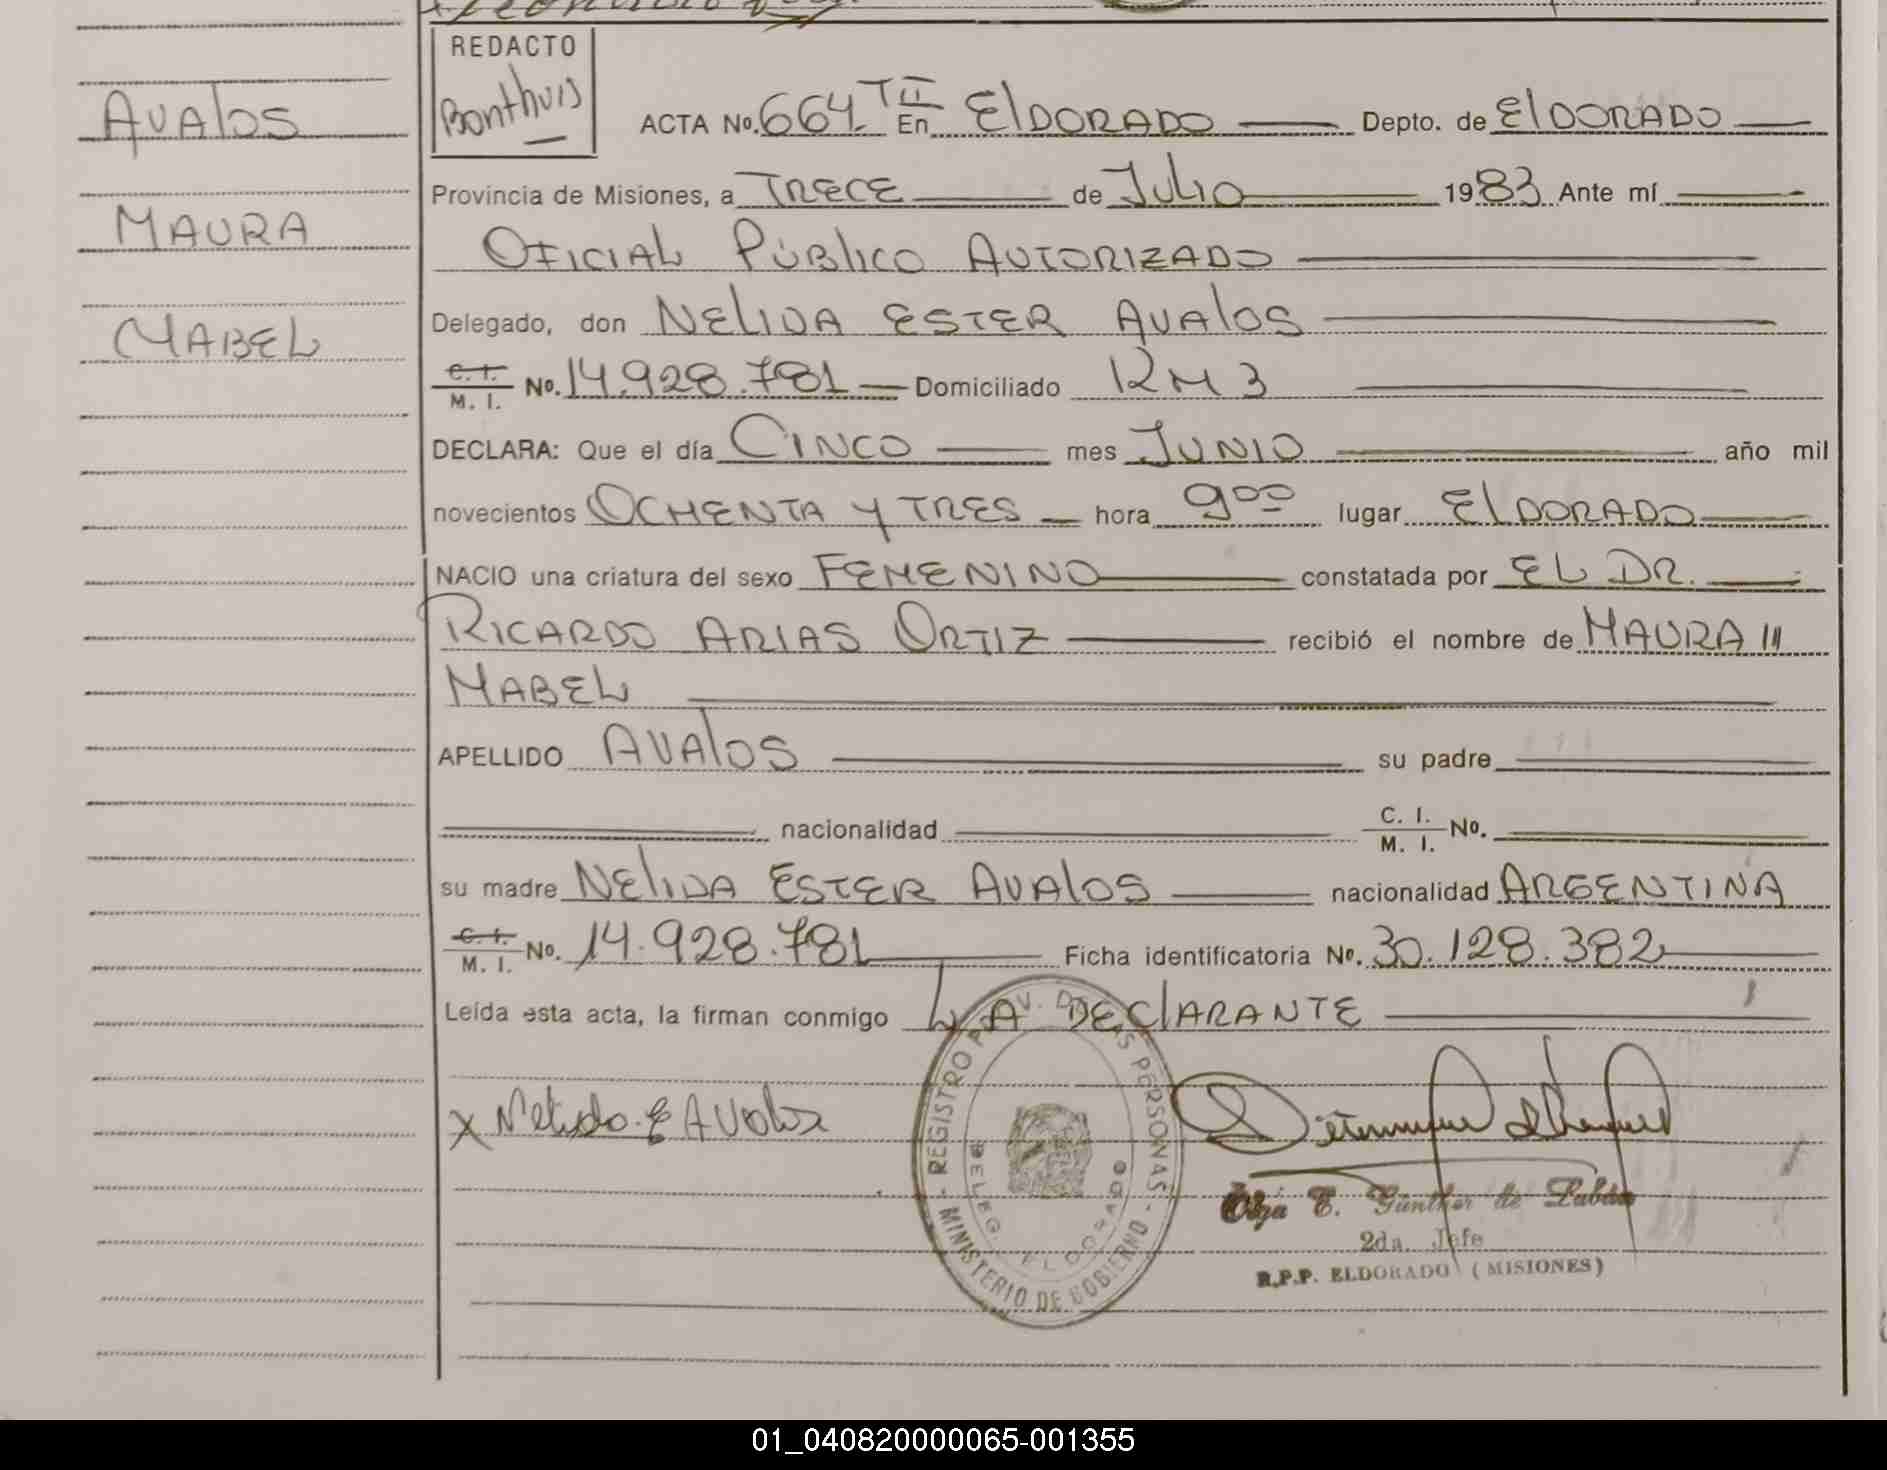 AVALOS
MAURA
MABEL
REDACTO
Bonthuis
ACTA No. 664 T II En ElDORADO Depto. de ElDORADO
Provincia de Misiones, a TRECE de JULIO 1983 Ante mí
OFICIAL PÚBLICO AUTORIZADO
Delegado, don NELIDA ESTER AVALOS
C. I. M. I. No. 14.928.781 Domiciliado KM 3
DECLARA: Que el día CINCO mes JUNIO año mil
novecientos OCHENTA Y TRES hora 9 00 lugar ElDORADO
NACIO una criatura del sexo FEMENINO constatada por EL DR.
RICARDO ARIAS ORTIZ recibió el nombre de MAURA
MABEL
APELLIDO AVALOS su padre
nacionalidad C. I. M. I. No.
su madre NELIDA ESTER AVALOS nacionalidad ARGENTINA
C. I. M. I. No. 14.928.781 Ficha identificatoria No. 30.128.382
Leída esta acta, la firman conmigo LA DECLARANTE
x Nelida E Avalos
REGISTRO PROV. DE LAS PERSONAS - MINISTERIO DE GOBIERNO -
DELEG. ELDORADO
Olga E. Günther de
2da. Jefe
R.P.P. ELDORADO (MISIONES)
01_040820000065-001355